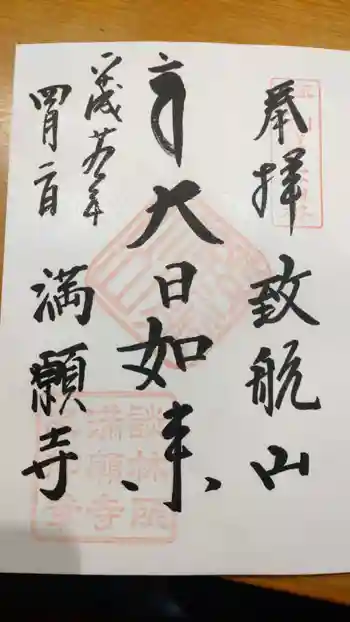 奉拝 致航山
大日如来
平成廿九年
四月二日 満願寺
談林所
満願寺